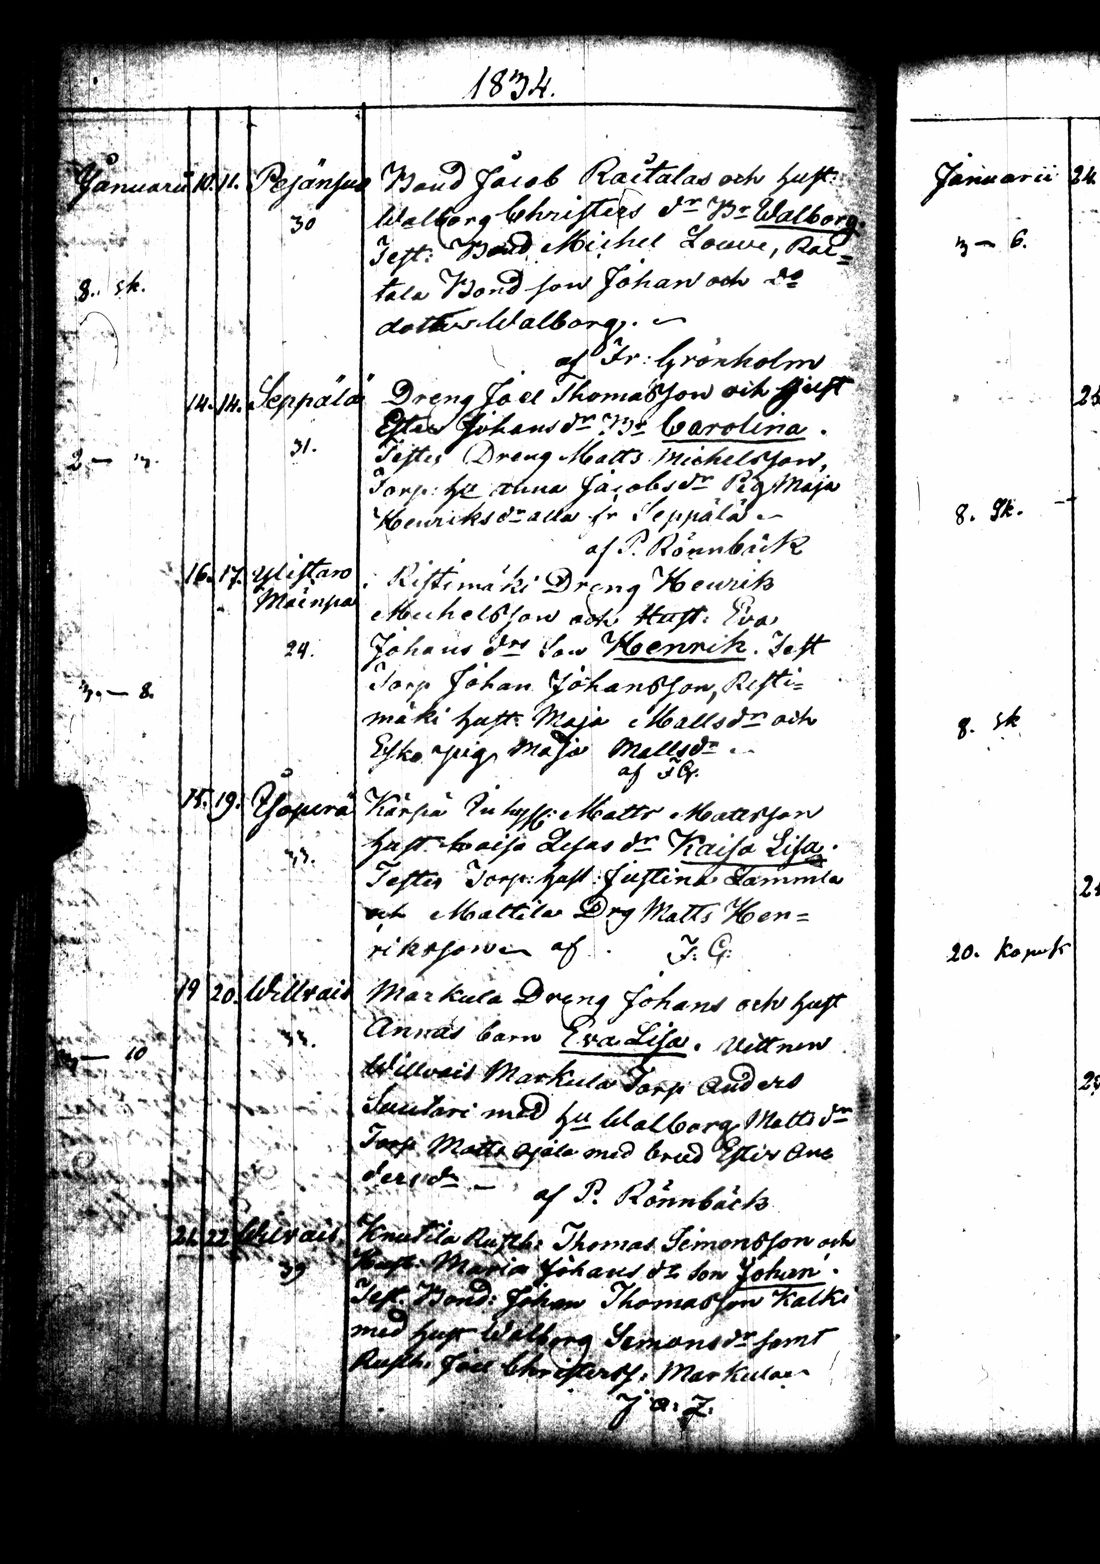 1834.
Januarii 10. 11. Pejänsuo Bond Jacob Raitalas och hust:
30 Walborg Christers dr Br Walborg.
Test: Bond Michel Louve, Rai=
8. sk. tala Bond son Johan och do
dotter Walborg.
af Fr: Grönholm
14. 14. Seppälä Dreng Joel Thomasson och Hust
Ester Johansdr Br Carolina.
31. Testes Dreng Matts Michelsson,
Torp: Hu Anna Jacobsdr Pig Maja
Henriksdr alla fr Seppälä
af P. Rönnbäck
16. 17. Ylistaro Ristimäki Dreng Henrik
Mainpa Michelsson och Hust: Eva
24. Johans drs Son Henrik. Test
3. — 8. Torp Johan Johansson, Risti=
mäki hust: Maja Mattsdr och
Esko pig Maja Mattsdr
af F. G.
15. 19. Kärpä Inhyss: Matts Mattsson
33. hust Kaisa Lisas dr Kaisa Lisa.
Testes Torp: hust: Justina Lammila
och Mattila Drg Matts Hen=
riksson af F. G.
19 20. Willvais Markula Dreng Johans och hust
33. Annas barn Eva Lisa. Vittnen
— 10 Willvais Markula Torp Anders
Suutari med Hu Walborg Mattsdr
Torp Matts Ojala med brud Ester An
dersdr —
af P. Rönnbäck
21. 22 Wilvais Knutila Rusth: Thomas Simonsson och
39 Hust: Maria Johans dr Son Johan.
Test. Bond: Johan Thomasson Kalki
med hust Walborg Simonsdr samt
Rusth. Joel Christerss: Markula
J. A. Z.
Januarii 24.
3 — 6.
8. sk.
8. sk
20. Kopek